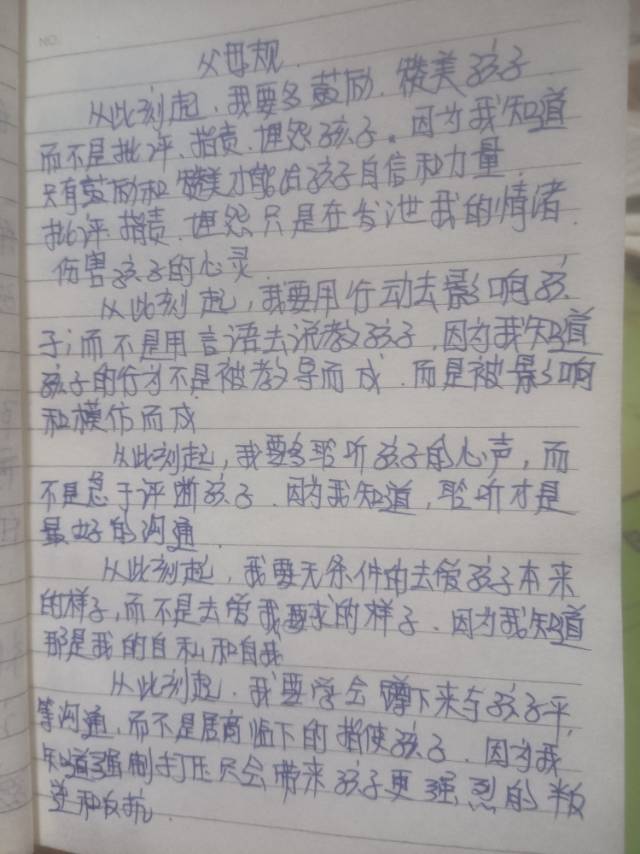 NO.
父母规.
从此刻起,我要多鼓励.赞美孩子
而不是批评、指责.埋怨孩子。因为我知道
只有鼓励和赞美才能给孩子自信和力量.
批评.指责.埋怨只是在发泄我的情绪.
伤害孩子的心灵.
从此刻起,我要用行动去影响孩
子;而不是用言语去说教孩子.因为我知道
孩子的行为不是被教导而成.而是被影响
和模仿而成
从此刻起,我要多聆听孩子的心声,而
不是急于评断孩子.因为我知道,聆听才是
最好的沟通.
从此刻起,我要无条件的去爱孩子本来
的样子,而不是去爱我要求的样子.因为我知道
那是我的自私和自我
从此刻起.我要学会蹲下来与孩子平
等沟通,而不是居高临下的指使孩子.因为我
知道强制打压只会带来孩子更强烈的叛
逆和反抗.